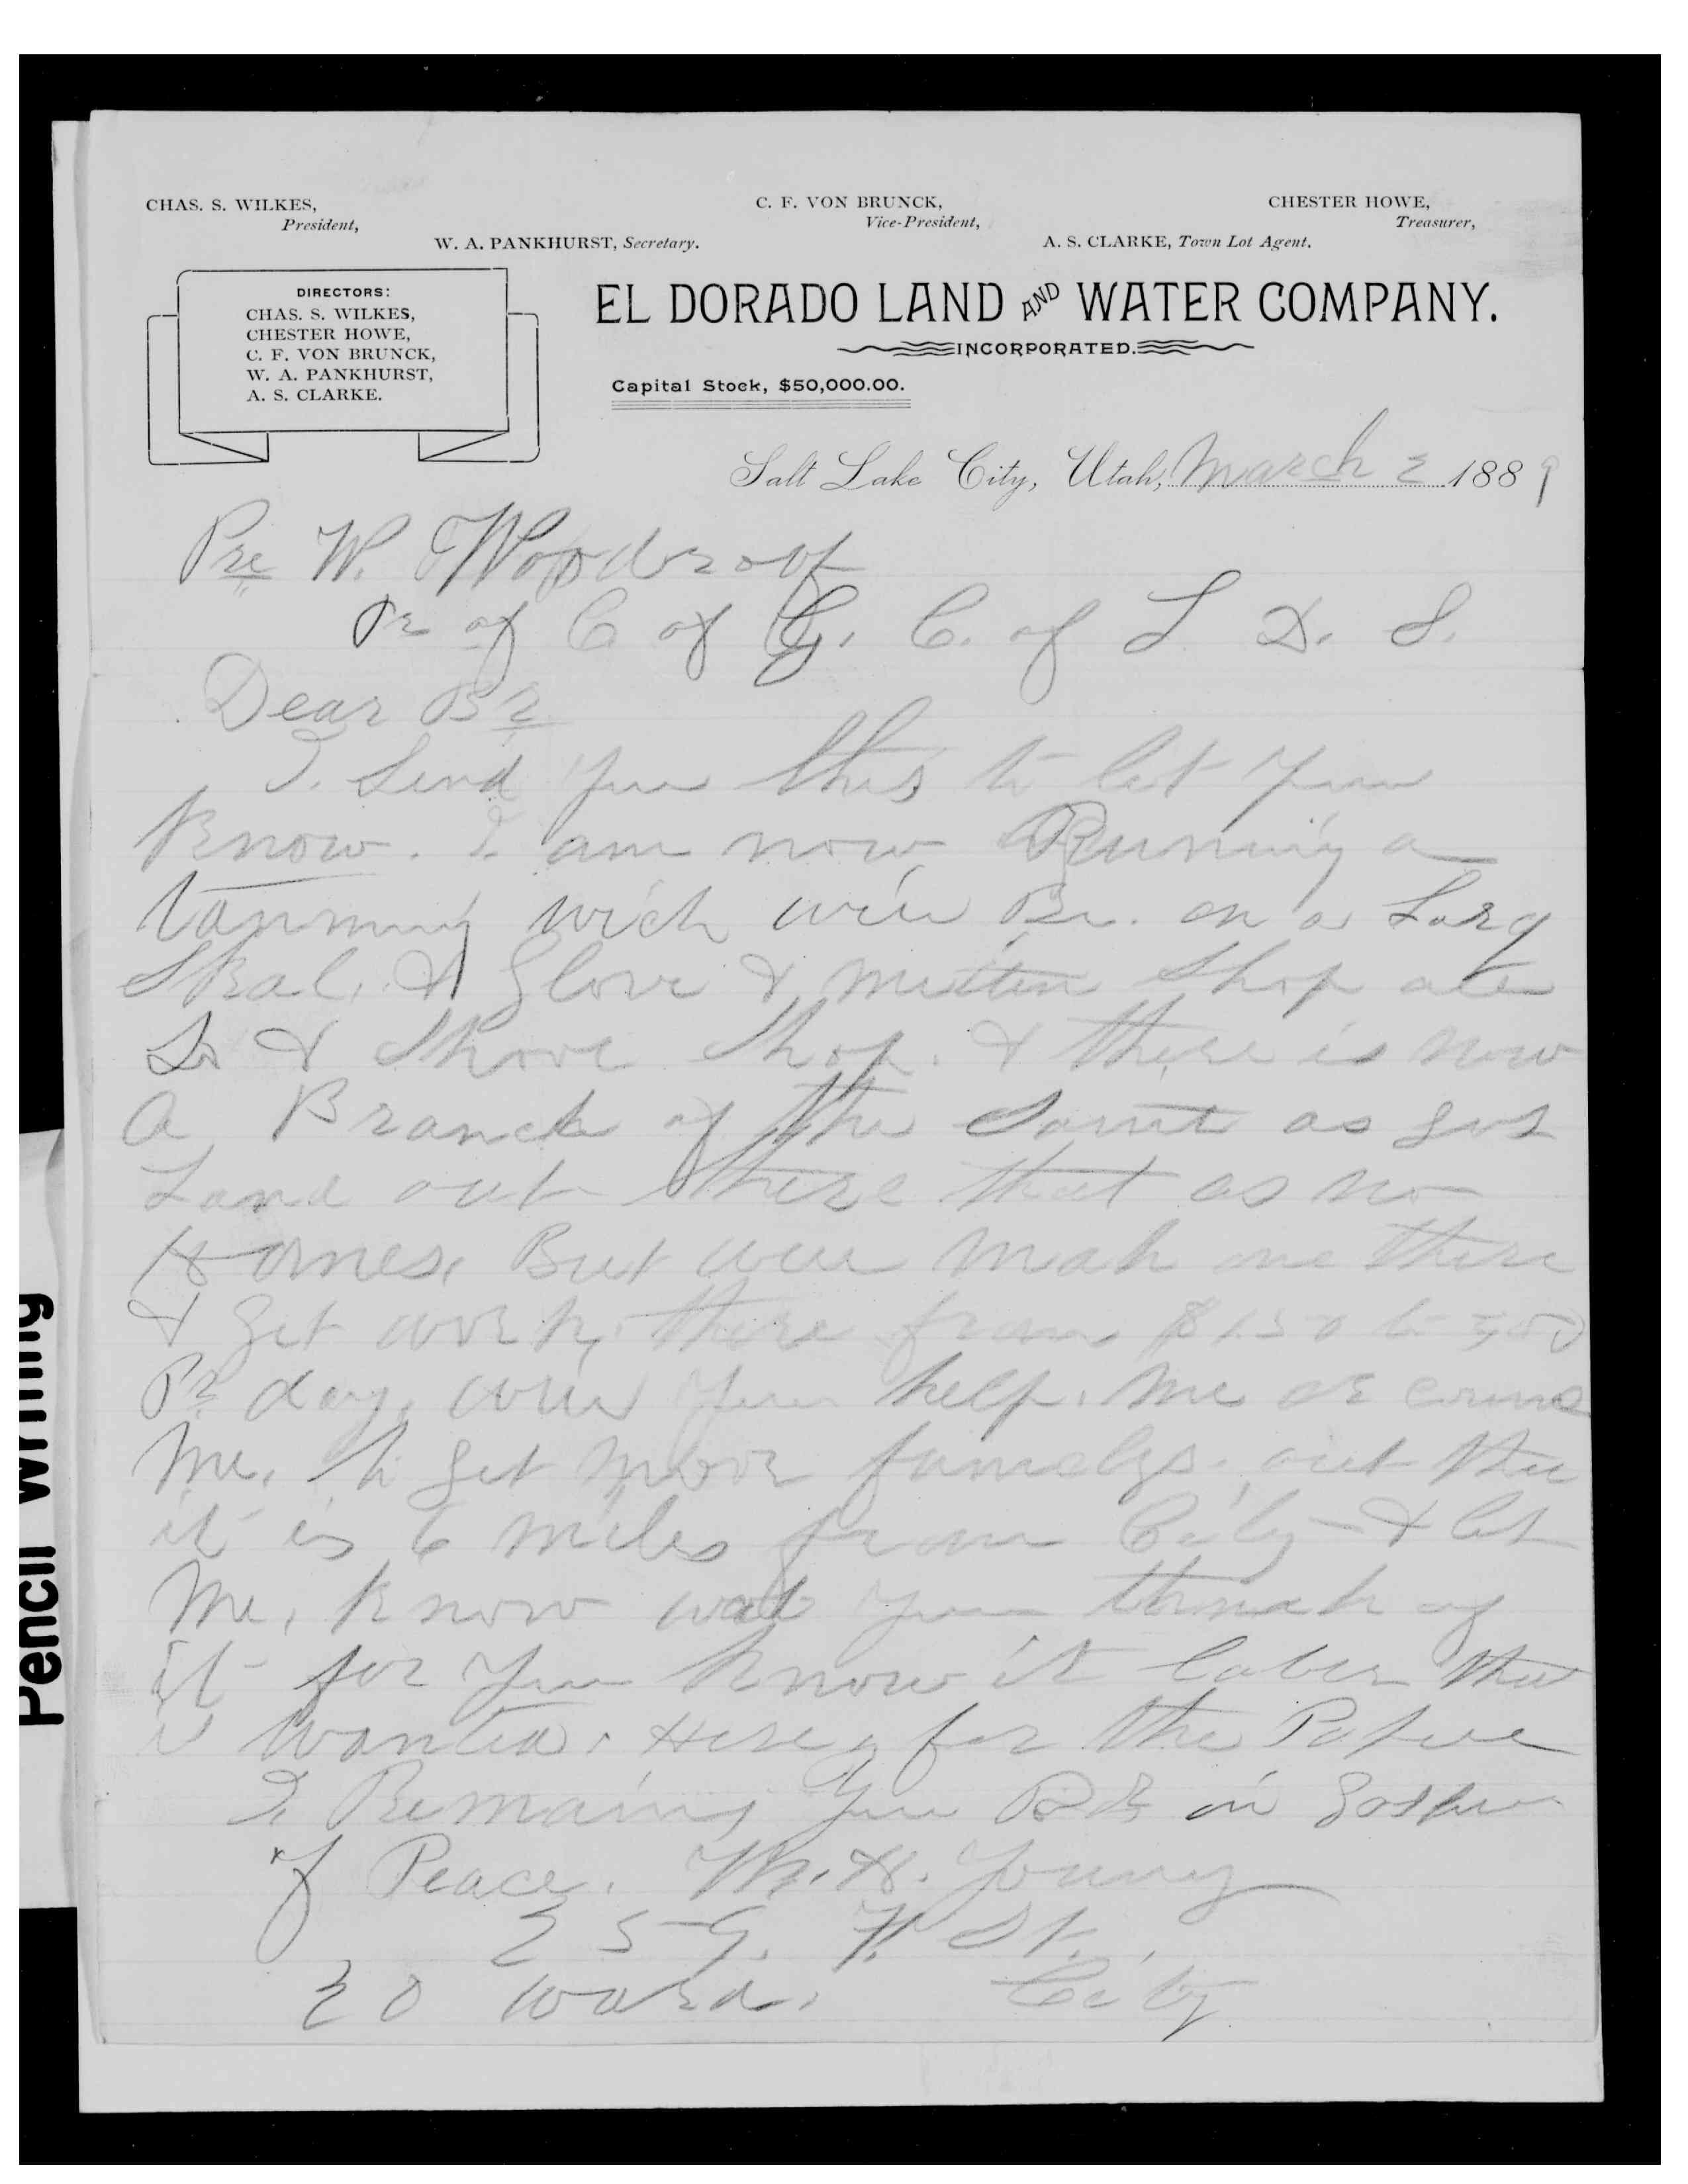 CHAS. S. WILKES,
President,
C. F. VON BRUNCK,
Vice-President,
CHESTER HOWE,
Treasurer,
W. A. PANKHURST, Secretary.
A. S. CLARKE, Town Lot Agent.
DIRECTORS:
CHAS. S. WILKES,
CHESTER HOWE,
C. F. VON BRUNCK,
W. A. PANKHURST,
A. S. CLARKE.
EL DORADO LAND AND WATER COMPANY.
INCORPORATED.
Capital Stock, $50,000.00.
Salt Lake City, Utah, March 2 1889
Pre W. Woodroof
Pr of C of G. C. of L D. S.
Dear Br
I. Send you this to let you
Know. I am now Running a
tanning wich will Be. on a Larg
Skal. & Glove & mitten Shop
& Shove Shop. & there is now
a Branch of the Saint as got
Land out there that as no
Homes, But will mak one there
& Get work, there from $1.50 to
Pr day, will you help. me or
me. to get more familys. out
it is 6 miles from City & let
me, know wat you think of
it for you know it laber that
is wanted. Here, for the
I Remaing your Br in
of Peace. M. H. Young
259. F St.,
20 ward. City
Pencil writing